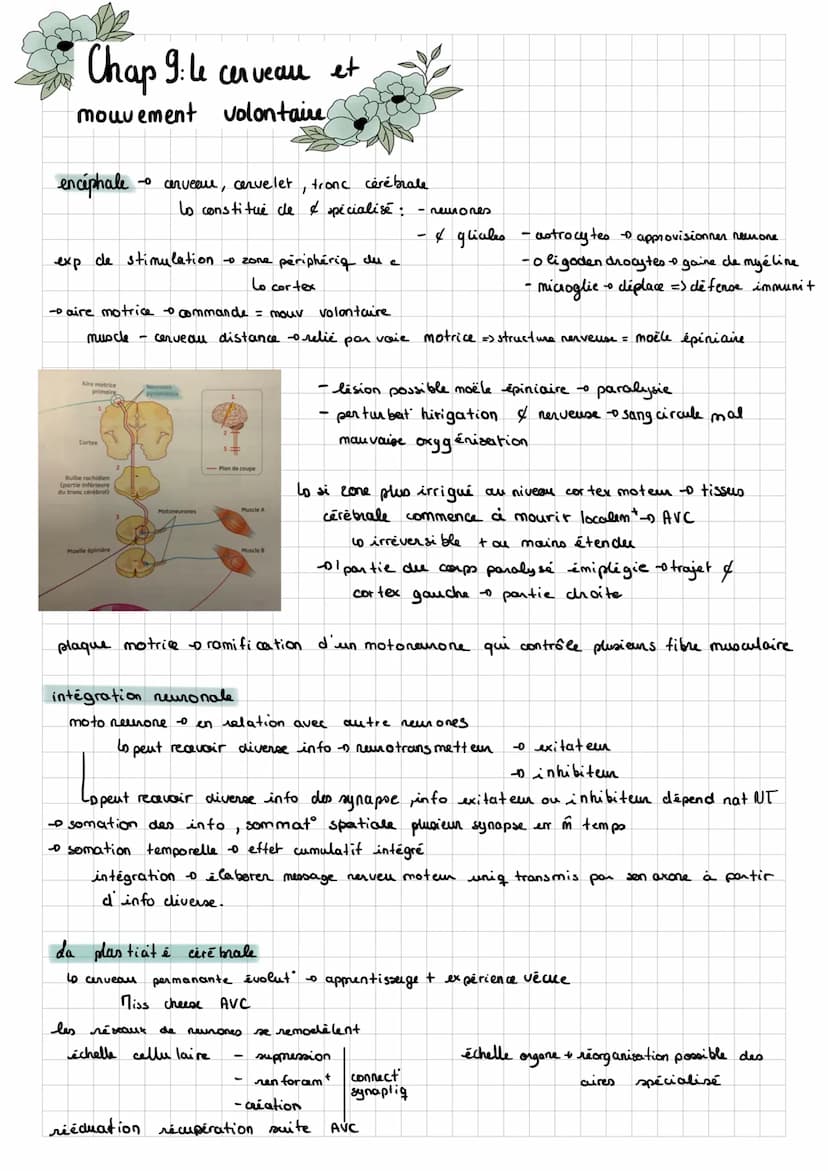 Chap 9: le cerveau et
mouvement volontaire
encéphale → cerveau, cervelet, tronc cérébrale
↳ constitué de ¢ spécialisé : - neurones
- ¢ gliales - astrocytes → approvisionner neurone
- oligodendrocytes → gaine de myéline
- microglie → déplace => défense immunit
exp de stimulation → zone périphériq du c
↳ cortex
→ aire motrice → commande = mouv volontaire
muscle - cerveau distance → relié par voie motrice => structure nerveuse = moëlle épiniaire
Aire motrice primaire
Neurones pyramidaux
1
Cortex
2
Bulbe rachidien
(partie inférieure
du tronc cérébral)
3
Motoneurones
Muscle A
Moelle épinière
Muscle B
1
2
3
Plan de coupe
- lésion possible moële épiniaire → paralysie
- perturbat° hirigation ¢ nerveuse → sang circule mal
mauvaise oxygénisation
↳ si zone plus irrigué au niveau cortex moteur → tissus
cérébrale commence à mourir localemt → AVC
↳ irréversible + ou moins étendu
→ 1 partie du corps paralysé émiplégie → trajet ¢
cortex gauche → partie droite
plaque motrice → ramification d'un motoneurone qui contrôle plusieurs fibre musculaire
intégration neuronale
moto neurone → en relation avec autre neurones
↳ peut recevoir diverse info → neurotransmetteur → exitateur
→ inhibiteur
↳ peut recevoir diverse info des synapse, info exitateur ou inhibiteur dépend nat NT
→ somation des info, sommat° spatiale plusieur synapse en m̂ temps
→ somation temporelle → effet cumulatif intégré
intégration → élaborer message nerveu moteur uniq transmis par son axone à partir
d'info diverse.
La plasticité cérébrale
↳ cerveau permanante évolut° → apprentissage + expérience vécue
Miss cheese AVC
les réseaux de neurones se remodèlent
échelle cellulaire - supression
- renforamt
- création
connect°
synapliq
échelle organe + réorganisation possible des
aires spécialisé
rééduation récupération suite AVC